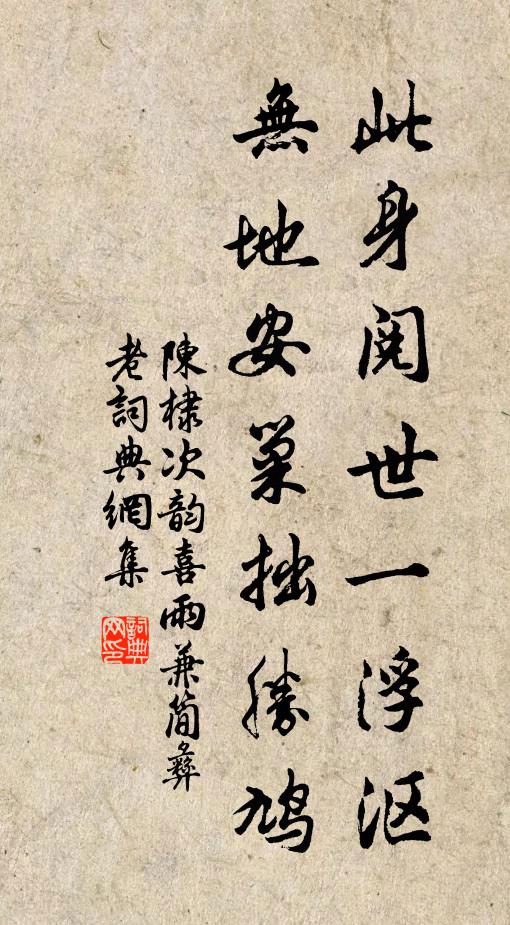 此身阅世一浮沤
無地安巢拙勝鳩
陳棣次韵喜雨兼简彝
老詞典網集
詞典
网印